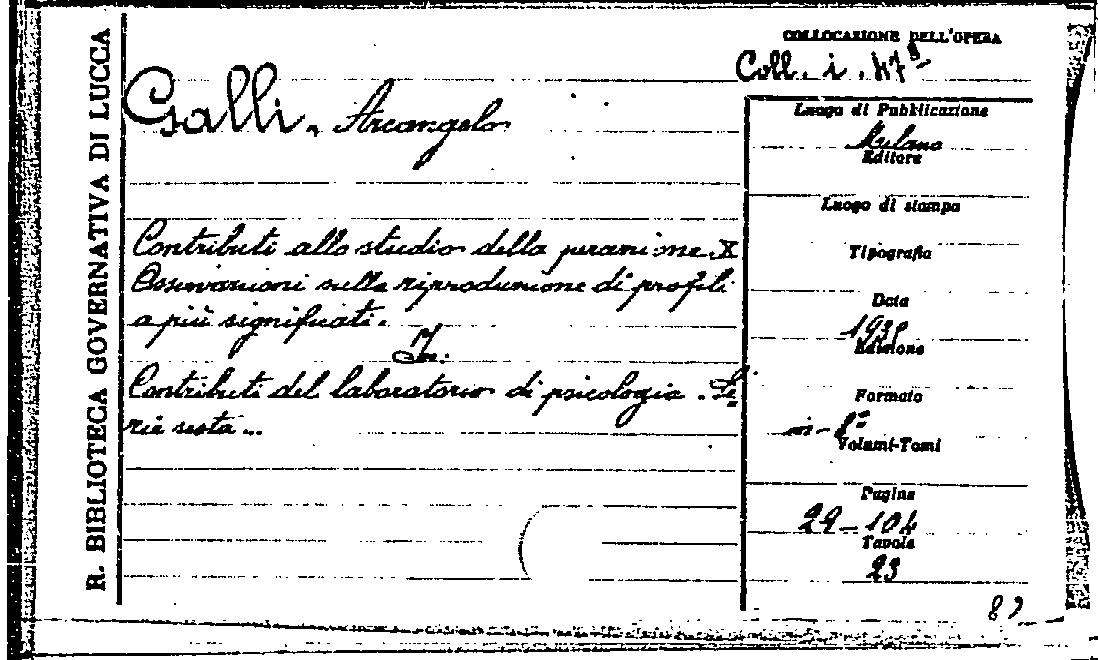 R. BIBLIOTECA GOVERNATIVA DI LUCCA
COLLOCAZIONE DELL'OPERA
Coll. i. 47
Galli, Arcangelo
Luogo di Pubblicazione
Milano
Editore
Luogo di stampa
Contributi allo studio della X
Tipografia
Osservazioni sulla riproduzione di profili
Data
a più significati.
193
Edizione
In:
Contributi del laboratorio di psicologia. Se=
Formato
rie sesta ...
in-8º
Volumi-Tomi
Pagine
29-104
Tavole
23